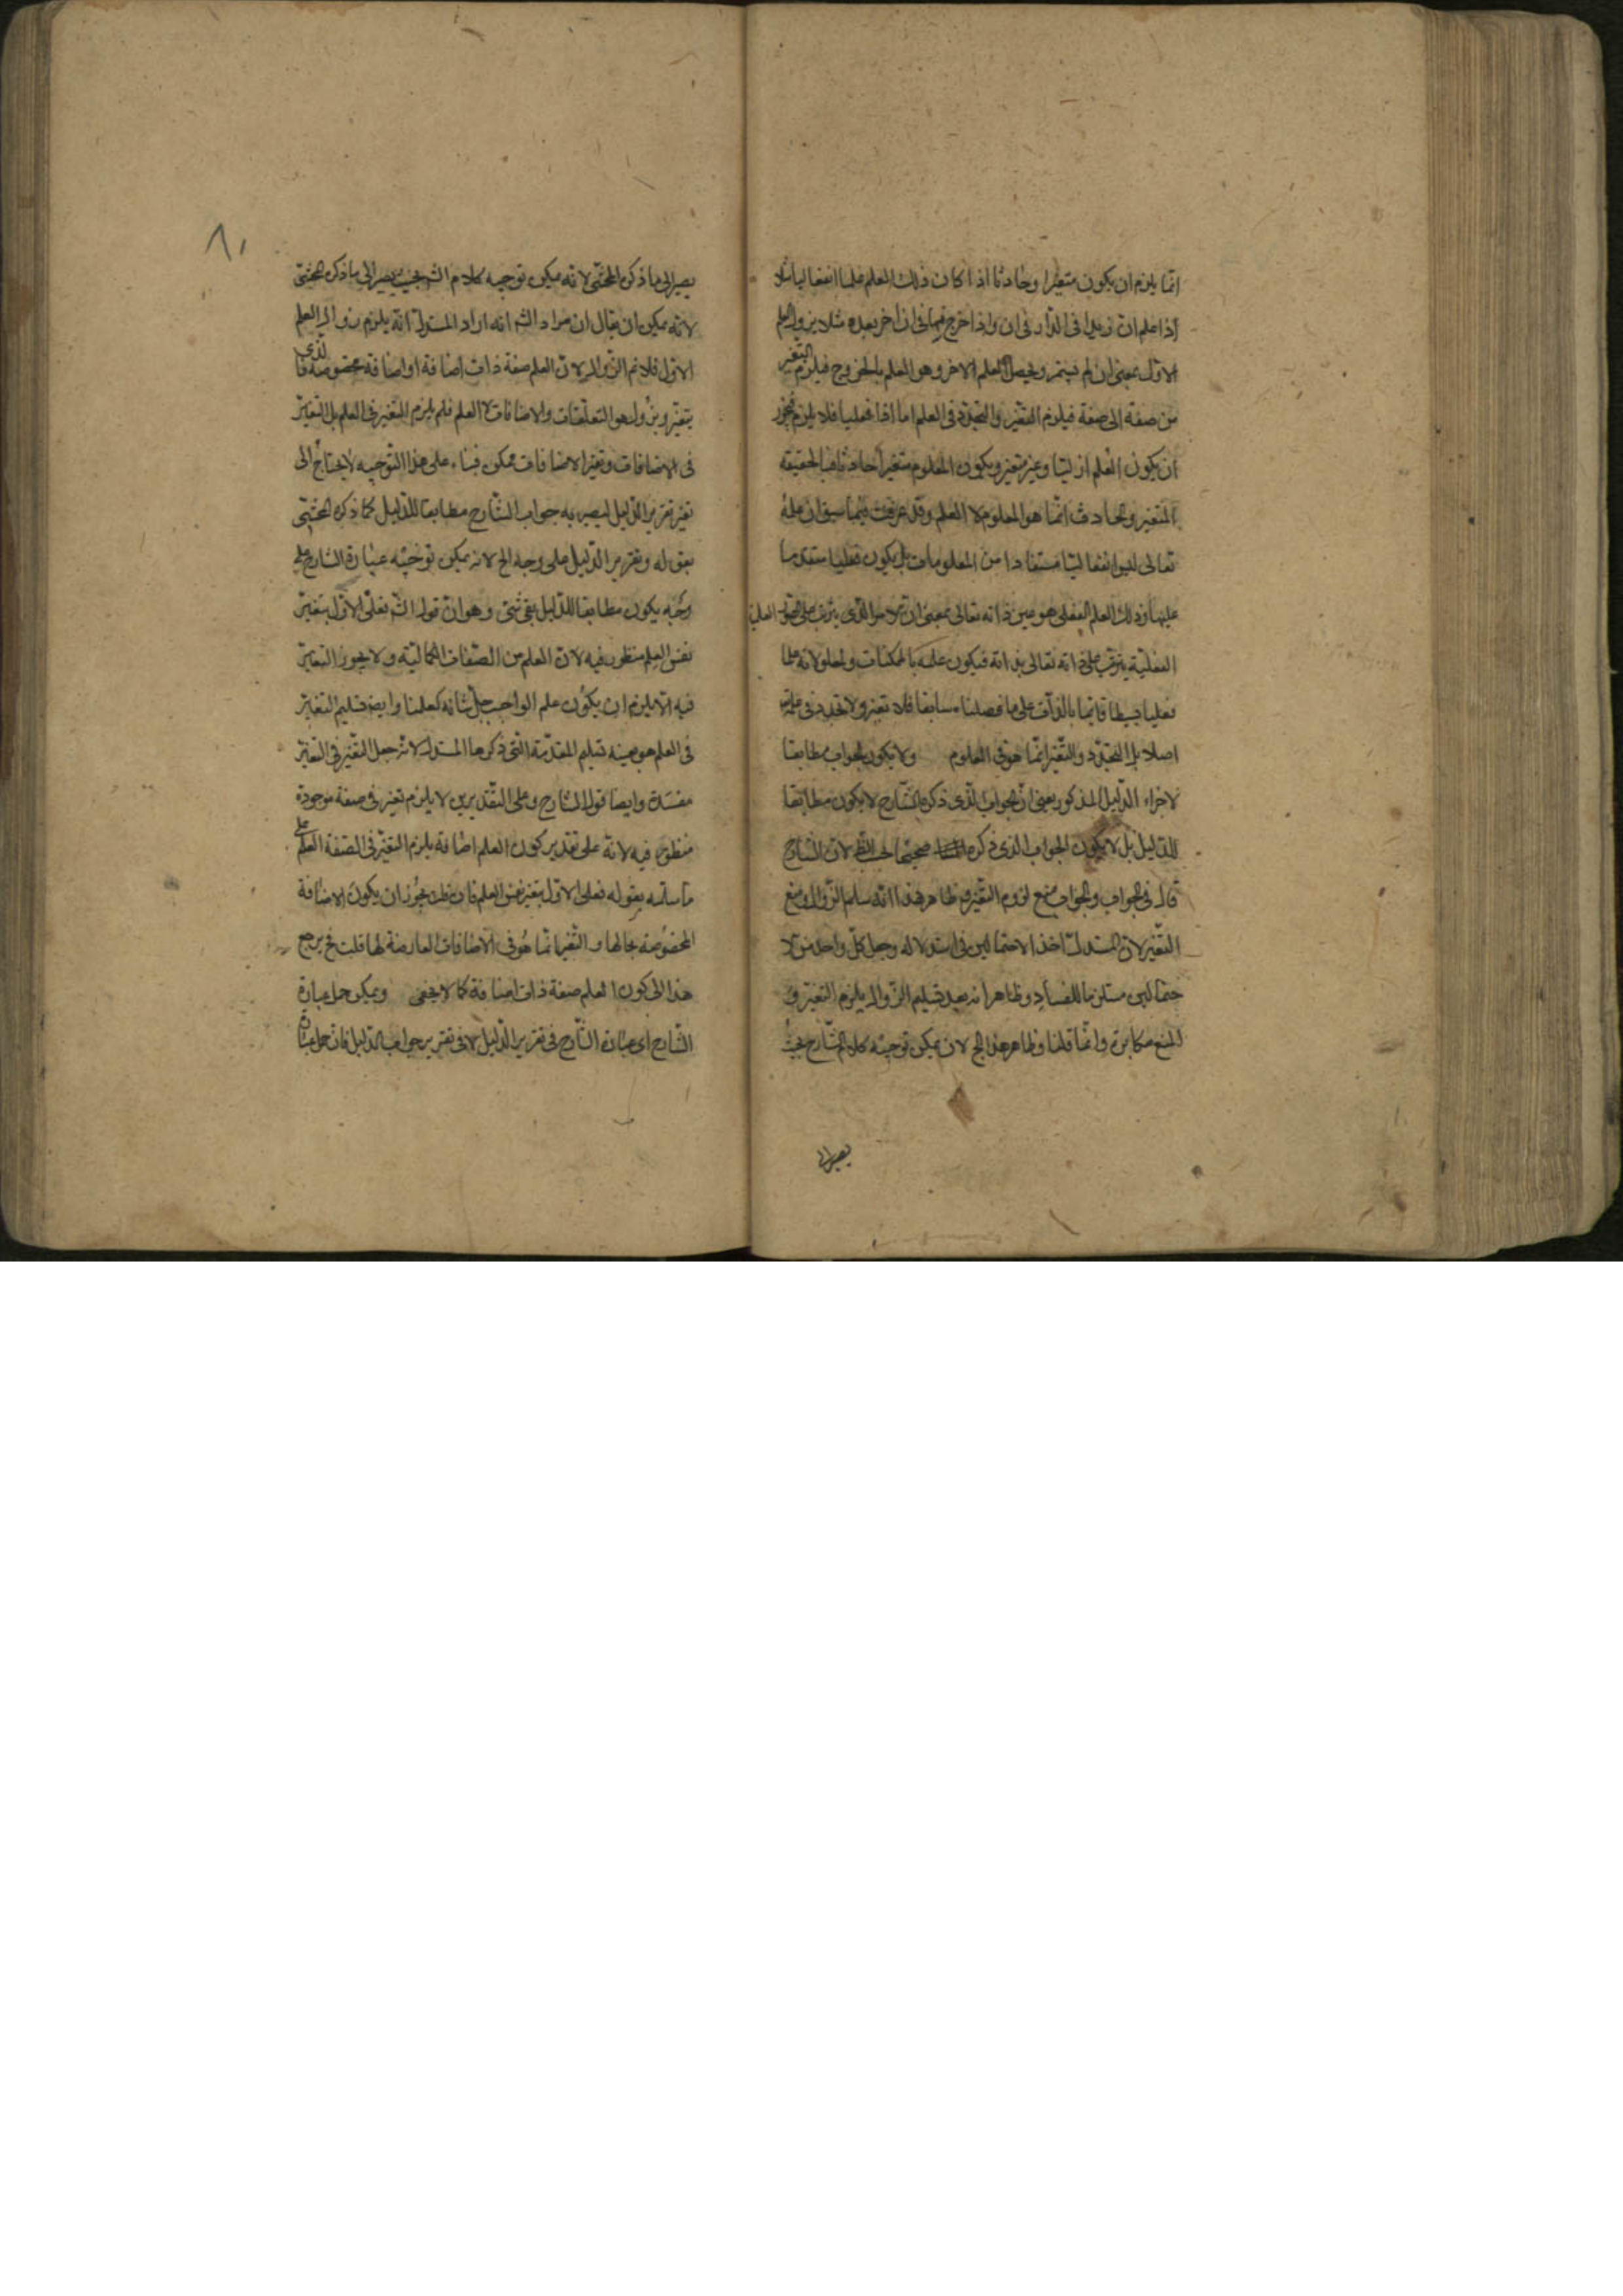 انما يلزم ان يكون متغيرا وحادثا اذا كان ذلك العلم علما انفعاليا مثلا
اذا علم ان زيدا فى الدار فى ان واذا خرج فى ان اخر بعده مثلا يزول العلم
الاول بمعنى ان لم يستمر ويحصل العلم الاخر وهو العلم بالخروج فيلزم التغير
من صفة الى صفة فيلزم التغير والتجدد فى العلم اما اذا فعليا فلا يلزم فيجوز
ان يكون العلم ازليا وغير متغير ويكون المعلوم متغيرا حادثا فبالحقيقة
المتغير والحادث انما هو المعلوم لا العلم وقد عرفت فيما سبق ان علمه
تعالى ليس انفعاليا مستفادا من المعلومات بل يكون فعليا متقدما
عليها وذلك العلم الفعلى هو عين ذاته تعالى بمعنى ان الامر الذى يترتب على الصور العلمية
الفعلية يترتب على ذاته تعالى بذاته فيكون علمه بالممكنات ولمعلولاته علما
فعليا بسيطا قائما بالذات على ما فصلناه سابقا فلا تغير ولا تجدد فى علمه
اصلا بل التجدد والتغير انما هو فى المعلوم ولا يكون الجواب مطابقا
لاجزاء الدليل المذكور يعنى ان الجواب الذى ذكره الشارح لا يكون مطابقا
للدليل بل لا يكون الجواب الذى ذكره صحيحا لان الشارح
قال فى الجواب والجواب منع لزوم التغير وظاهر هذا انه سلم الزوال ومنع
التغير لان المستدل اخذ الاحتمالين فى استدلاله وجعل كل واحد من الا
حتمالين مستلزما للفساد وظاهر انه بعد تسليم الزوال يلزم التغير و
المنع مكابرة وانما قلنا وظاهر هذا الخ لان يمكن توجيه كلام الشارح بحيث
يصير الى
٨١
يصير الى ما ذكره المحشى لانه يمكن توجيه كلام الش بحيث يصير الى ما ذكره المحشى
لانه يمكن ان يقال ان مراد الش انه اراد المستدل انه يلزم زوال العلم
الاول فلا نم الزوال لان العلم صفة ذات اضافة او اضافة مخصوصة فالذى
يتغير ويزول هو التعلقات والاضافات لا العلم فلم يلزم التغير فى العلم بل التغير
فى الاضافات وتغير الاضافات ممكن فبناء على هذا التوجيه لا يحتاج الى
تغير تقرير الدليل ليصير به جواب الشارح مطابقا للدليل كما ذكره المحشى
بقوله وتقرير الدليل على وجه الخ لانه يمكن توجيه عبارة الشارح على
وجه يكون مطابقا للدليل بقى شئ وهو ان قول الش فعلى الاول يتغير
نفس العلم منظور فيه لان العلم من الصفات الكمالية ولا يجوز التغير
فيه الا يلزم ان يكون علم الواجب جل شانه كعلمنا وايضا تسليم التغير
فى العلم هو بعينه تسليم المقدمة التى ذكرها المستدل لانه جعل التغير فى التغير
مفسدة وايضا قول الشارح وعلى التقديرين لا يلزم تغير فى صفة موجودة
منظور فيه لانه على تقدير كون العلم اضافة يلزم التغير فى الصفة العلم على
ما سلمه بقوله فعلى الاول يتغير نفس العلم فان قلت يجوز ان يكون الاضافة
المخصوصة بحالها والتغير انما هو فى الاضافات العارضة لها قلت فح يرجع
هذا الى كون العلم صفة ذات اضافة كما لا يخفى ويمكن حمل عبارة
الشارح اى عبارة الشارح فى تقرير الدليل لا فى تقرير جواب الدليل فان حمل عبارة